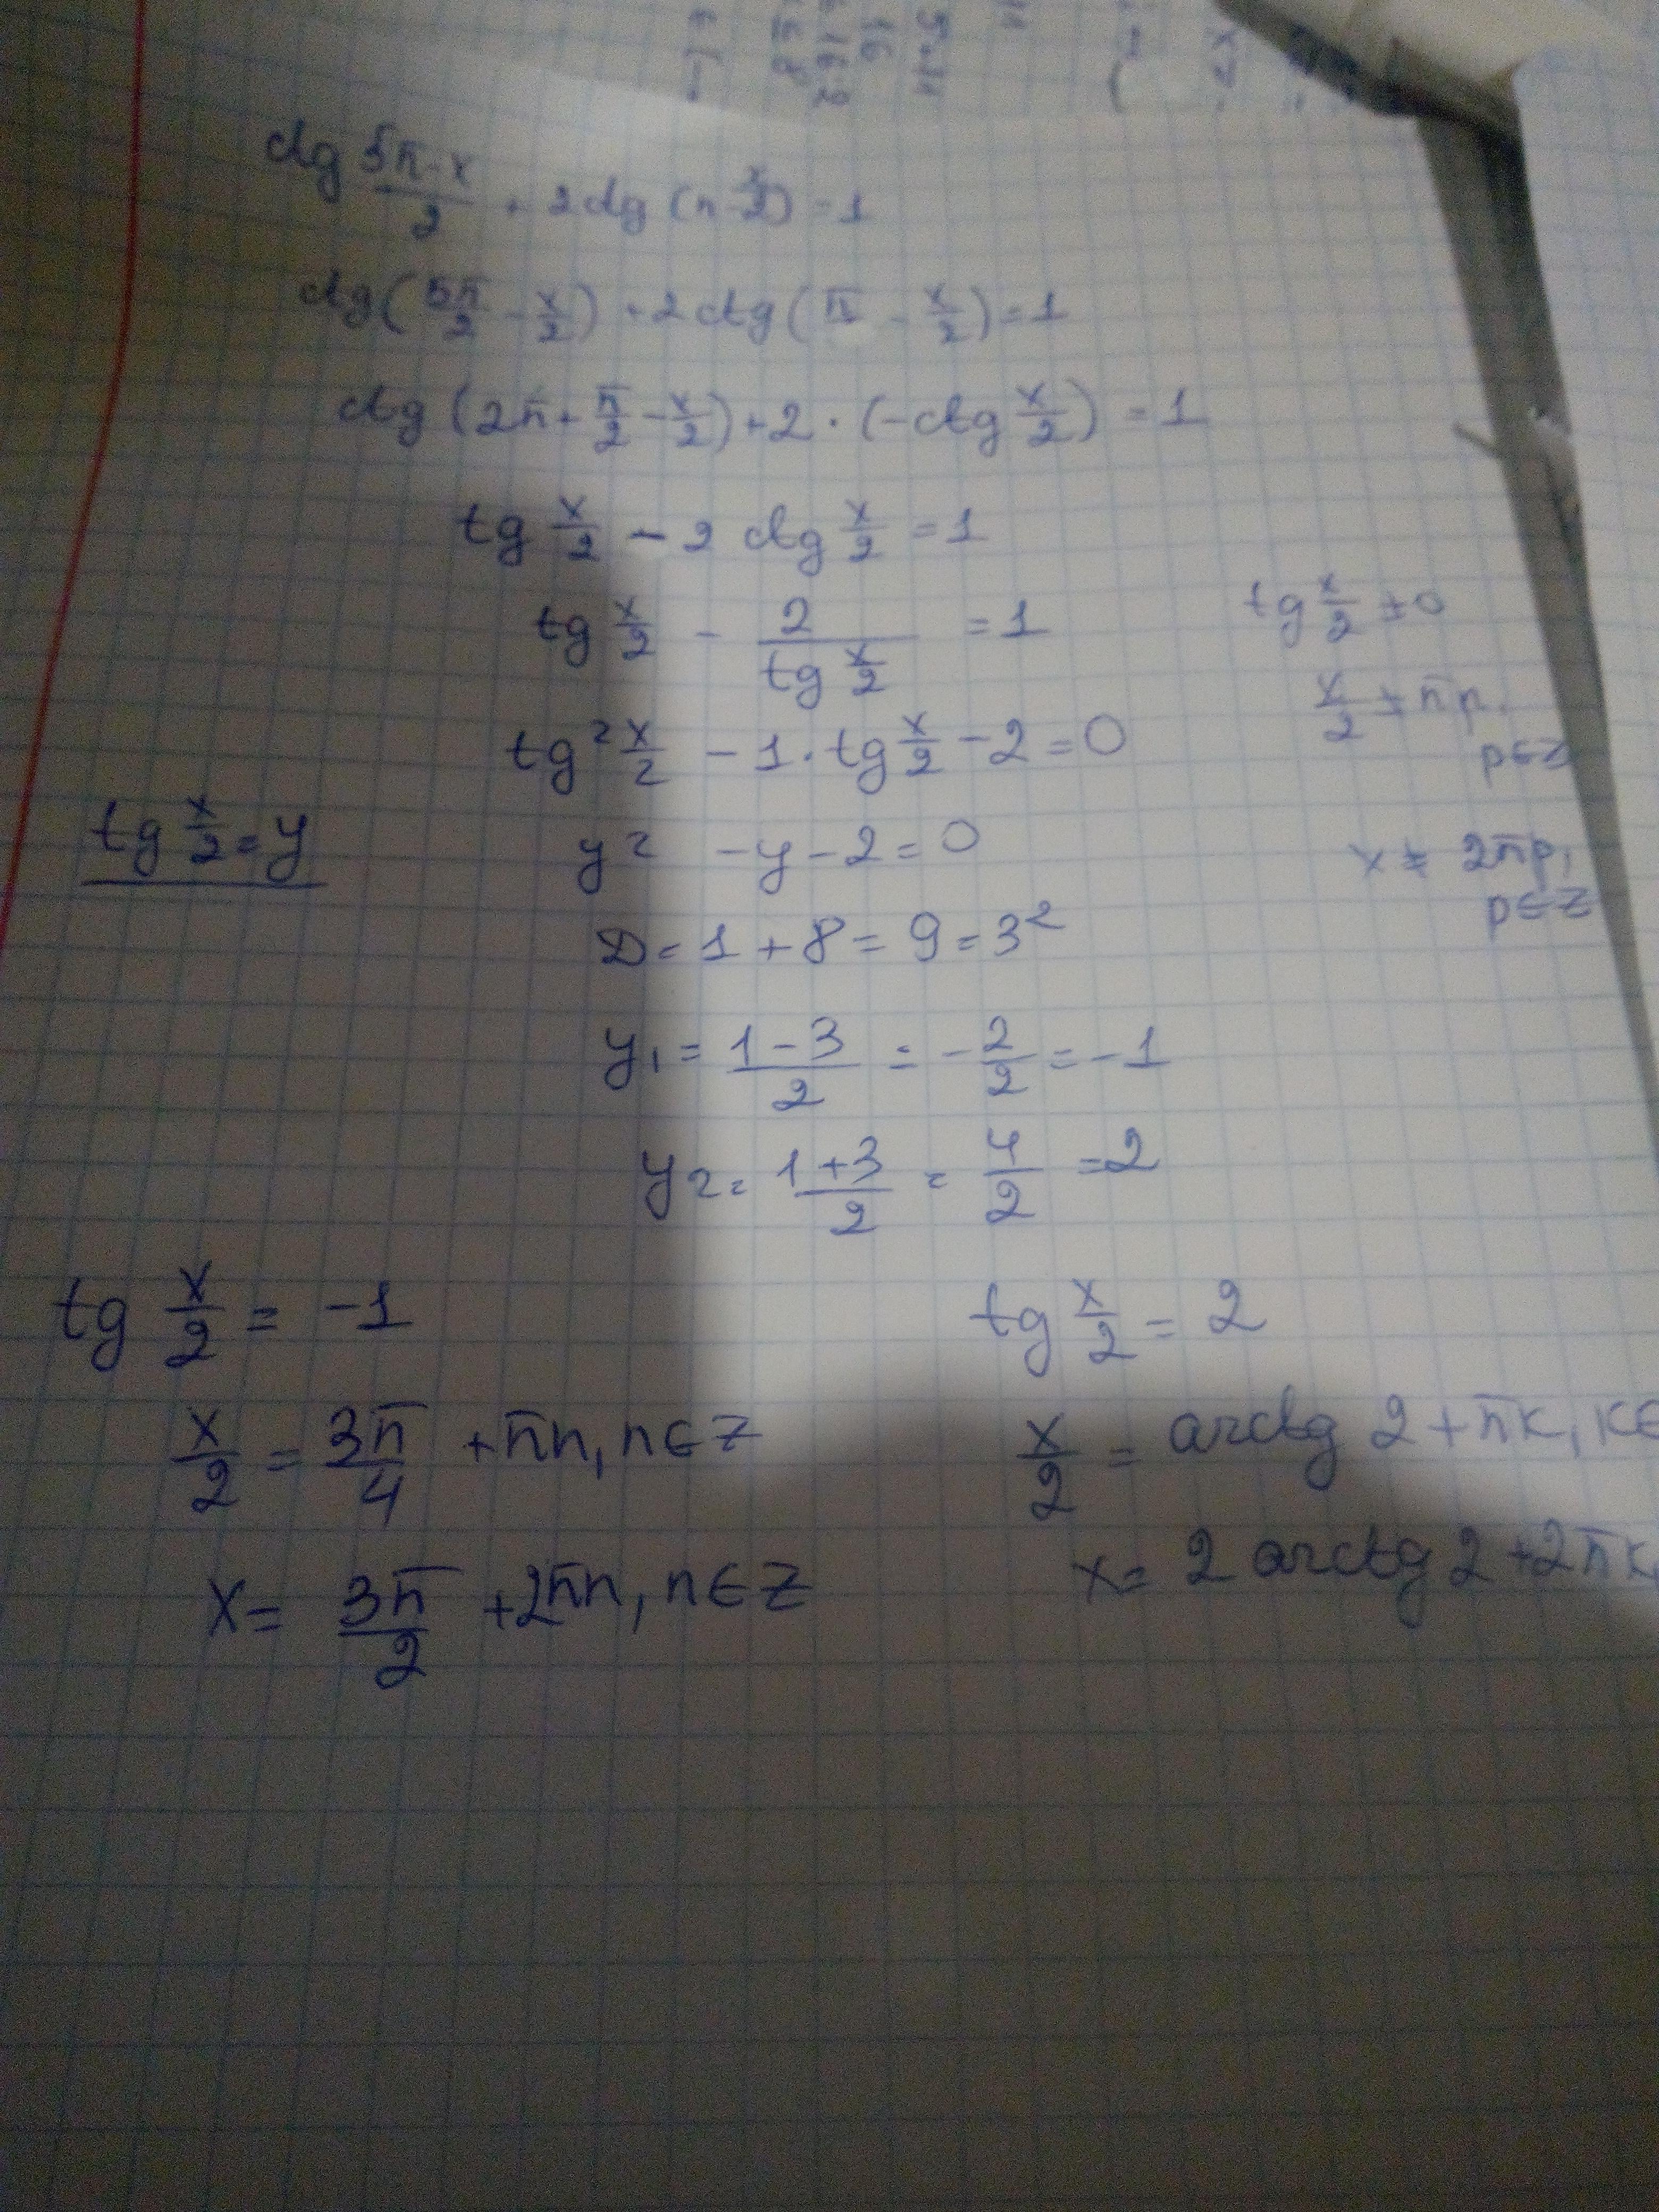 ctg (5π-x)/2 + 2ctg (π - x/2) = 1
ctg (5π/2 - x/2) + 2ctg (π - x/2) = 1
ctg (2π + π/2 - x/2) + 2 · (-ctg x/2) = 1
tg x/2 - 2 ctg x/2 = 1
tg x/2 - 2/(tg x/2) = 1
tg x/2 ≠ 0
x/2 ≠ πp,
p∈Z
tg² x/2 - 1 · tg x/2 - 2 = 0
tg x/2 = y
y² - y - 2 = 0
x ≠ 2πp,
p∈Z
D = 1 + 8 = 9 = 3²
y₁ = (1-3)/2 = -2/2 = -1
y₂ = (1+3)/2 = 4/2 = 2
tg x/2 = -1
x/2 = 3π/4 + πn, n∈Z
x = 3π/2 + 2πn, n∈Z
tg x/2 = 2
x/2 = arctg 2 + πk, k∈
x = 2 arctg 2 + 2πk,